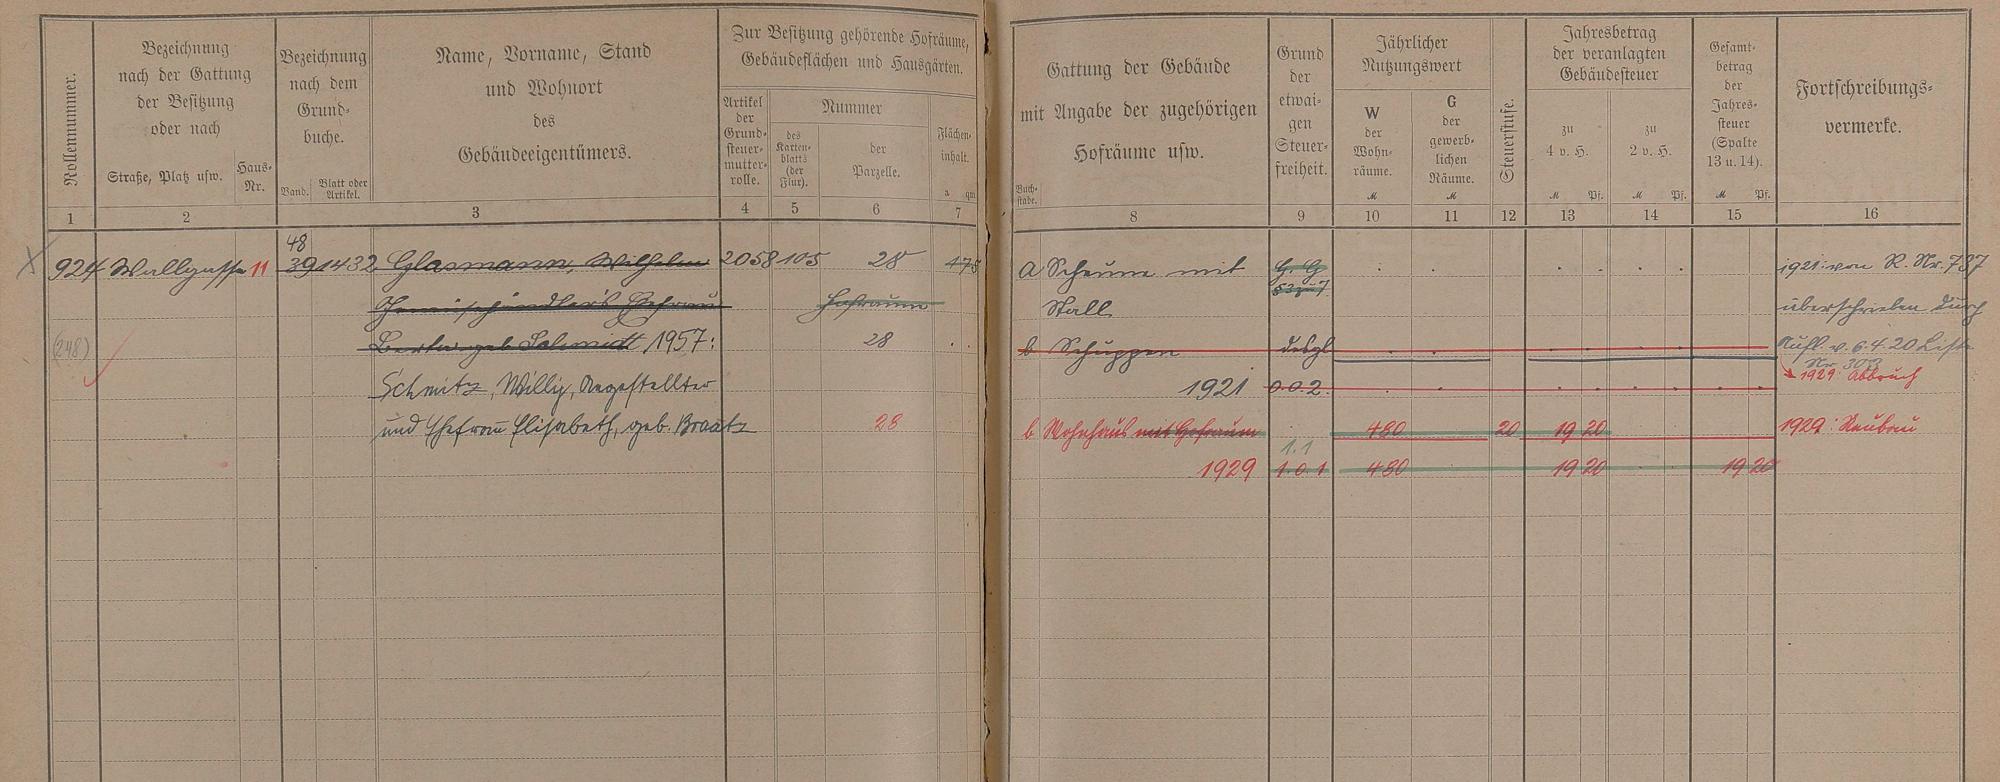 Rollennummer.
Bezeichnung
nach der Gattung
der Besitzung
oder nach
Straße, Platz usw.
Haus-
Nr.
Bezeichnung
nach dem
Grund-
buche.
Band.
Blatt oder
Artikel.
Name, Vorname, Stand
und Wohnort
des
Gebäudeeigentümers.
Zur Besitzung gehörende Hofräume,
Gebäudeflächen und Hausgärten.
Artikel
der
Grund-
steuer-
mutter-
rolle.
Nummer
des
Karten-
blatts
(der
Flur).
der
Parzelle.
Flächen-
inhalt.
a qm
1 2 3 4 5 6 7
48
924 Wallgasse 11 39 1432 Glasmann, Wilhelm 2058 105 28 475
Ehefrau Hofraum
(248) Berta geb. Schmidt 1957: 28
Schmitz, Willy, Angestellter
und Ehefrau Elisabeth, geb. Braatz 28
Gattung der Gebäude
mit Angabe der zugehörigen
Hofräume usw.
Buch-
stabe.
Grund
der
etwai-
gen
Steuer-
freiheit.
Jährlicher
Nutzungswert
W
der
Wohn-
räume.
M
G
der
gewerb-
lichen
Räume.
M
Steuerstufe.
Jahresbetrag
der veranlagten
Gebäudesteuer
zu
4 v. H.
M Pf.
zu
2 v. H.
M Pf.
Gesamt-
betrag
der
Jahres-
steuer
(Spalte
13 u. 14).
M Pf.
Fortschreibungs-
vermerke.
8 9 10 11 12 13 14 15 16
a Scheune mit G. G 1921: von R. Nr. 787
Stall überschrieben durch
b Schuppen desgl. Aufl. v. 6.4.20 Liste
Nr. 303
1921 0.0.2. 1929 Abbruch
b Wohnhaus mit Hofraum 480 20 19 20 1929: Neubau
1.1
1929 1.0.1 480 19 20 19 20